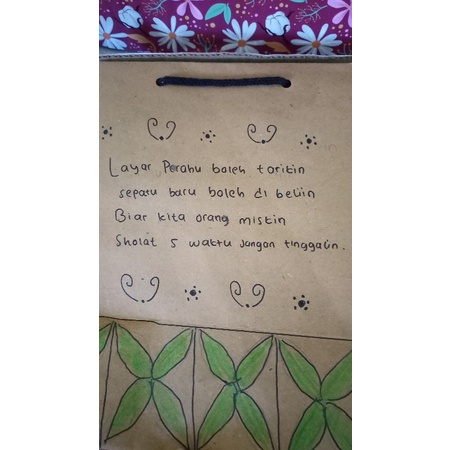 Layar Perahu boleh toritin
sepatu baru boleh di beliin
Biar kita orang miskin
Sholat 5 waktu jangan tinggalin.